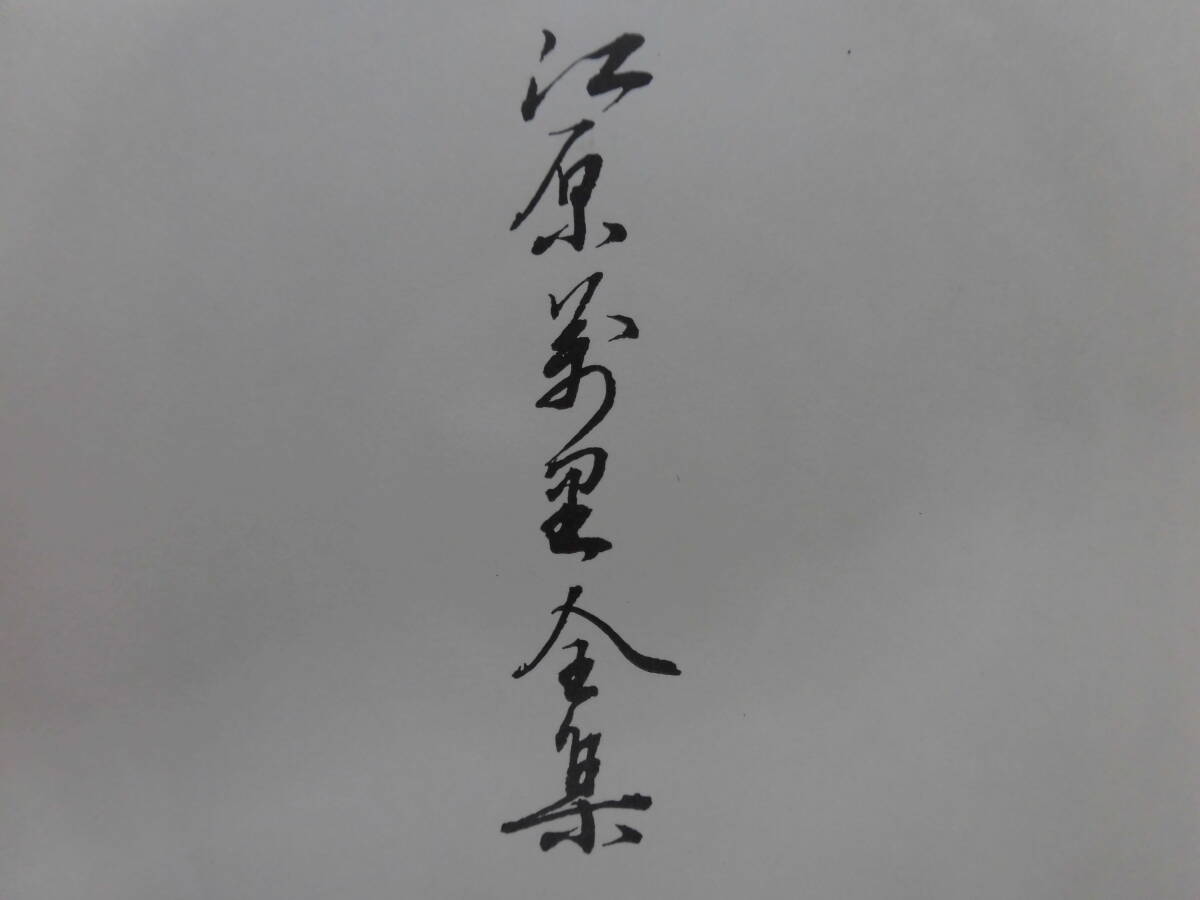 江原萬里全集